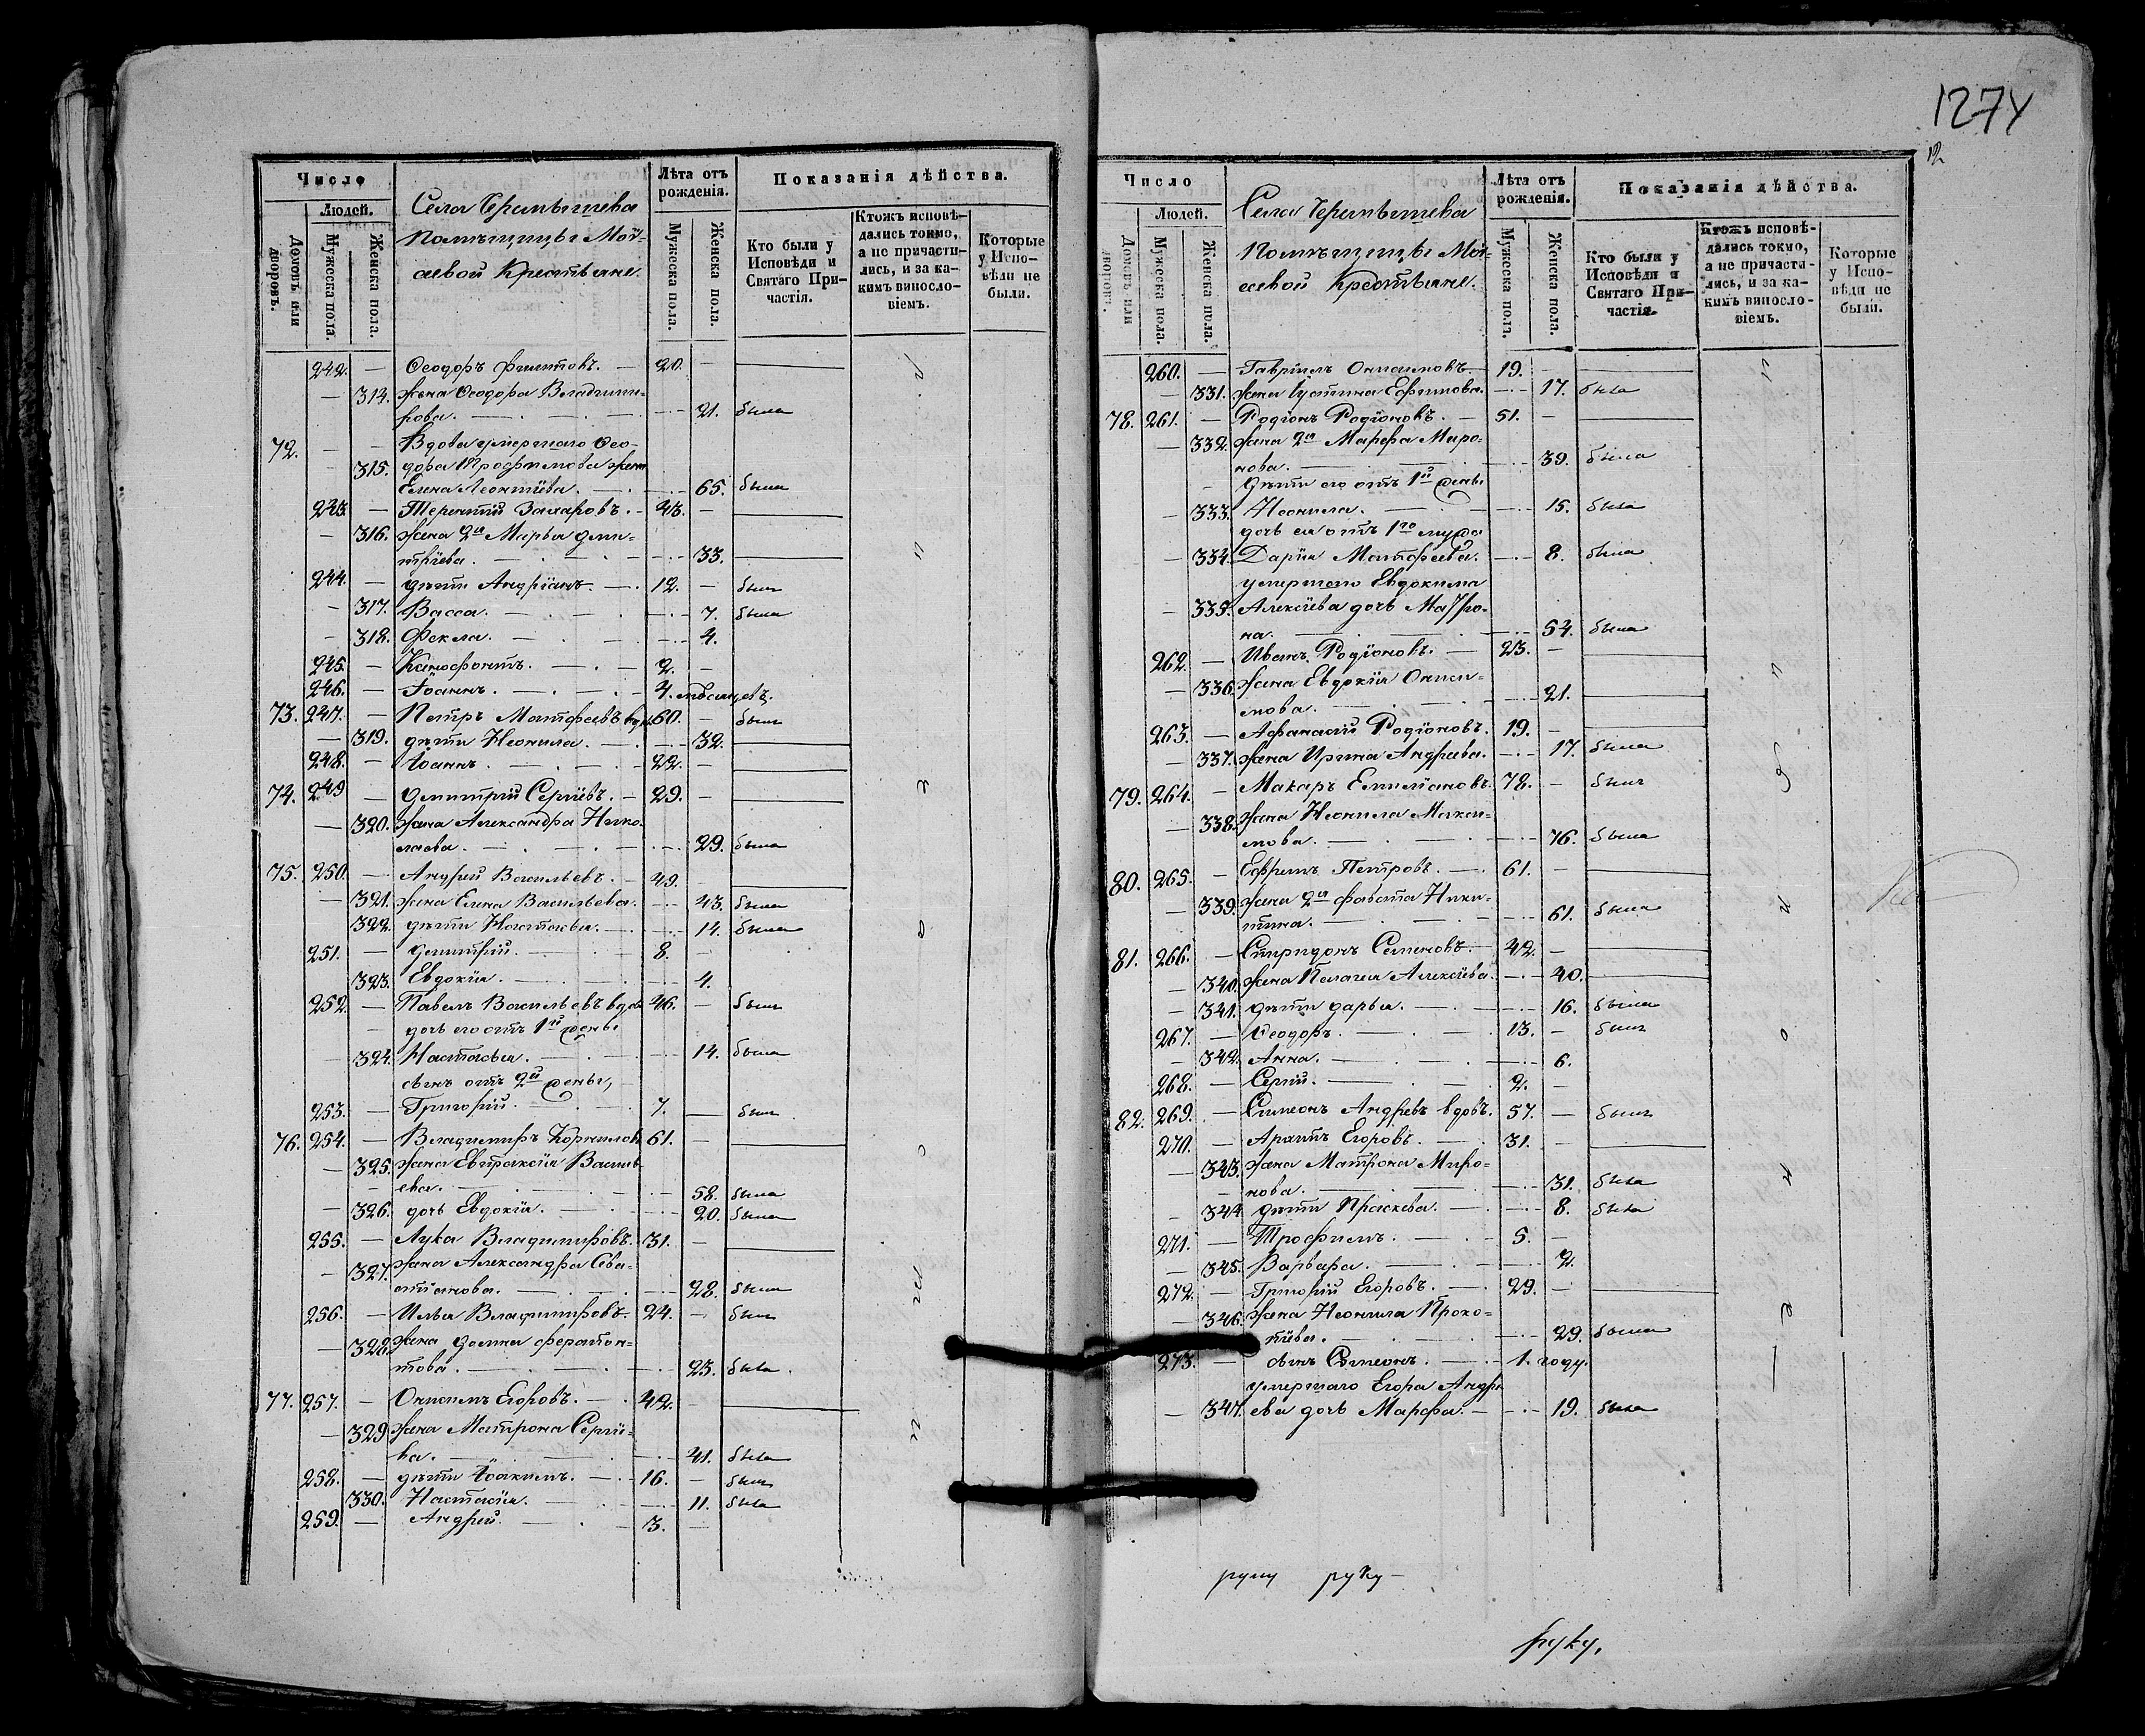 1274
12
Число
Людей.
Домовъ или дворовъ.
Мужеска пола.
Женска пола.
Села
помѣщицы Мой-
сеевой Крестьяне.
Лѣта отъ рожденія.
Мужеска пола.
Женска пола.
Показанія дѣйства.
Кто были у Исповѣди и Святаго При-частія.
Ктожъ исповѣ-дались токмо, а не причасти-лись, и за ка-кимъ винословіемъ.
Которые у Испо-вѣди не были.
242. — Ѳеодоръ — 20. —
— 314. жена Ѳеодора Владими-
рова. — 21. была
72. — — Вдова умершаго Ѳео-
315. дора Трофимова жена
Елена Леонтіева. — 65. была
243. — Терентій Захаровъ. — 43. —
— 316. жена 2я Марья Дими-
тріева. — 33.
244. — дѣти Андріанъ. — 12. — былъ
— 317. Васса. — 7. была
— 318. Ѳекла. — 4.
245. — Ксенофонтъ. — 2. —
246. — Іоаннъ. — 4. мѣсяцевъ.
73. 247. — Петръ Матфеевъ вдов. 60. — былъ
— 319. дѣти Неонила. — 32.
248. — Іоаннъ. — 22. —
74. 249 — Димитрій Сергіевъ. — 29. —
— 320. жена Александра Нико-
лаева. — 29. была
75. 250. — Андрей Васильевъ. — 49. —
— 321. жена Елена Васильева. — 43. была
322. дѣти Настасья. — 14. была
251. — Димитрій. — 8. —
323. Евдокія. — 4.
252. — Павелъ Васильевъ вдов. 46. — былъ
дочь его отъ 1й жены
324. Настасья. — 14. была
сынъ отъ 2й жены,
253. — Григорій. — 7. — былъ
76. 254. — Владимиръ Корниловъ 61. —
— 325. жена Евпраксія Василь-
ева. — 58. была
— 326. дочь Евдокія. — 20. была
255. — Лука Владимировъ. — 31. —
— 327. жена Александра Сева-
стіанова. — 28. была
256. — Илья Владимировъ. — 24. — былъ
— 328. жена Домна Ферапон-
това. — 23. была.
77. 257. — Онисимъ Егоровъ. — 42. —
— 329 жена Матрона Сергіе-
ва. — 41. была
258. — дѣти Іоакимъ. — 16. — былъ
330. Настасія. — 11. была
259. — Андрей. — 3. —
Число
Людей.
Домовъ или дворовъ.
Мужеска пола.
Женска пола.
Села
Помѣщицы Мой-
сеевой Крестьяне.
Лѣта отъ рожденія.
Мужеска пола.
Женска пола.
Показанія дѣйства.
Кто были у Исповѣди и Святаго При-частія.
Ктожъ исповѣ-дались токмо, а не причасти-лись, и за ка-кимъ винословіемъ.
Которые у Испо-вѣди не были.
260. — Гавріилъ Онисимовъ — 19. —
— 331. жена Іустина Ефимова. — 17. была
78. 261. — Родіонъ Родіоновъ. — 51. —
— 332. жена 2я Марфа Миро-
нова. — 39. была
Дѣти его отъ 1й жены
— 333. Неонила. — 15. была
дочь ея отъ 1го мужа
— 334. Дарія Матфеева. — 8. была
умершаго Евдокима
— 335. Алексіева дочь Матро-
на. — 54. была
262. — Иванъ Родіоновъ. — 23. —
— 336. жена Евдокія Ониси-
мова. — 21.
263. — Афанасій Родіоновъ. 19. —
— 337. жена Ирина Андреева. — 17. была
79. 264. — Макаръ Емеліановъ. 78. — былъ
— 338. жена Неонила Макси-
мова. — 76. была
80. 265. — Ефимъ Петровъ. — 61. —
— 339. жена 2я Никитина. — 61. была
81. 266. — Спиридонъ Семеновъ. — 42. —
— 340. жена Пелагея Алексіева. — 40.
— 341. дѣти Дарья. — 16. была
267. — Ѳеодоръ. — 13. — былъ
— 342. Анна. — 6.
268. — Сергій. — 2. —
82. 269. — Симеонъ Андреевъ вдовъ. 57. — былъ
270. — Архипъ Егоровъ. — 31. —
— 343. жена Матрона Миро-
нова. — 31. была
— 344 дѣти Прасковья. — 8. была
271. — Трофимъ. — 5. —
— 345. Варвара. — 2.
272. — Григорій Егоровъ. — 29. —
— 346. жена Неонила Проко-
піева. — 29. была
273. — сынъ Симеонъ. — 1. году.
умершаго Егора Андре-
— 347. ева дочь Марфа. — 19. была
руку руку
руку.